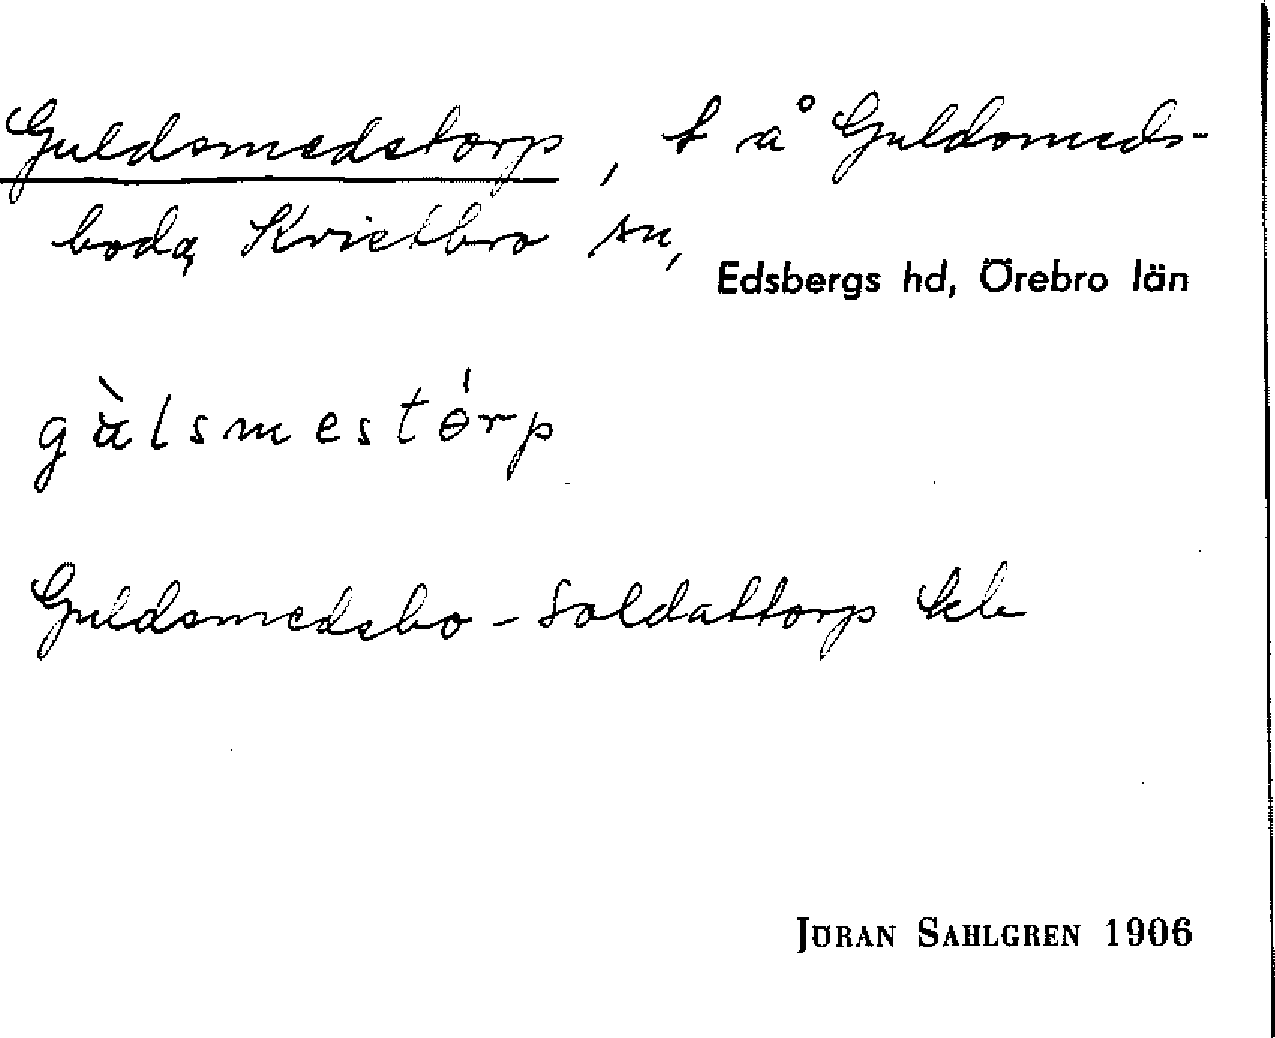 Guldsmedstorp, t å Guldsmeds-
boda, Kvistbro sn,
Edsbergs hd, Örebro län
gàlsmestórp
Guldsmedsbo-Soldattorp kb
JÖRAN SAHLGREN 1906